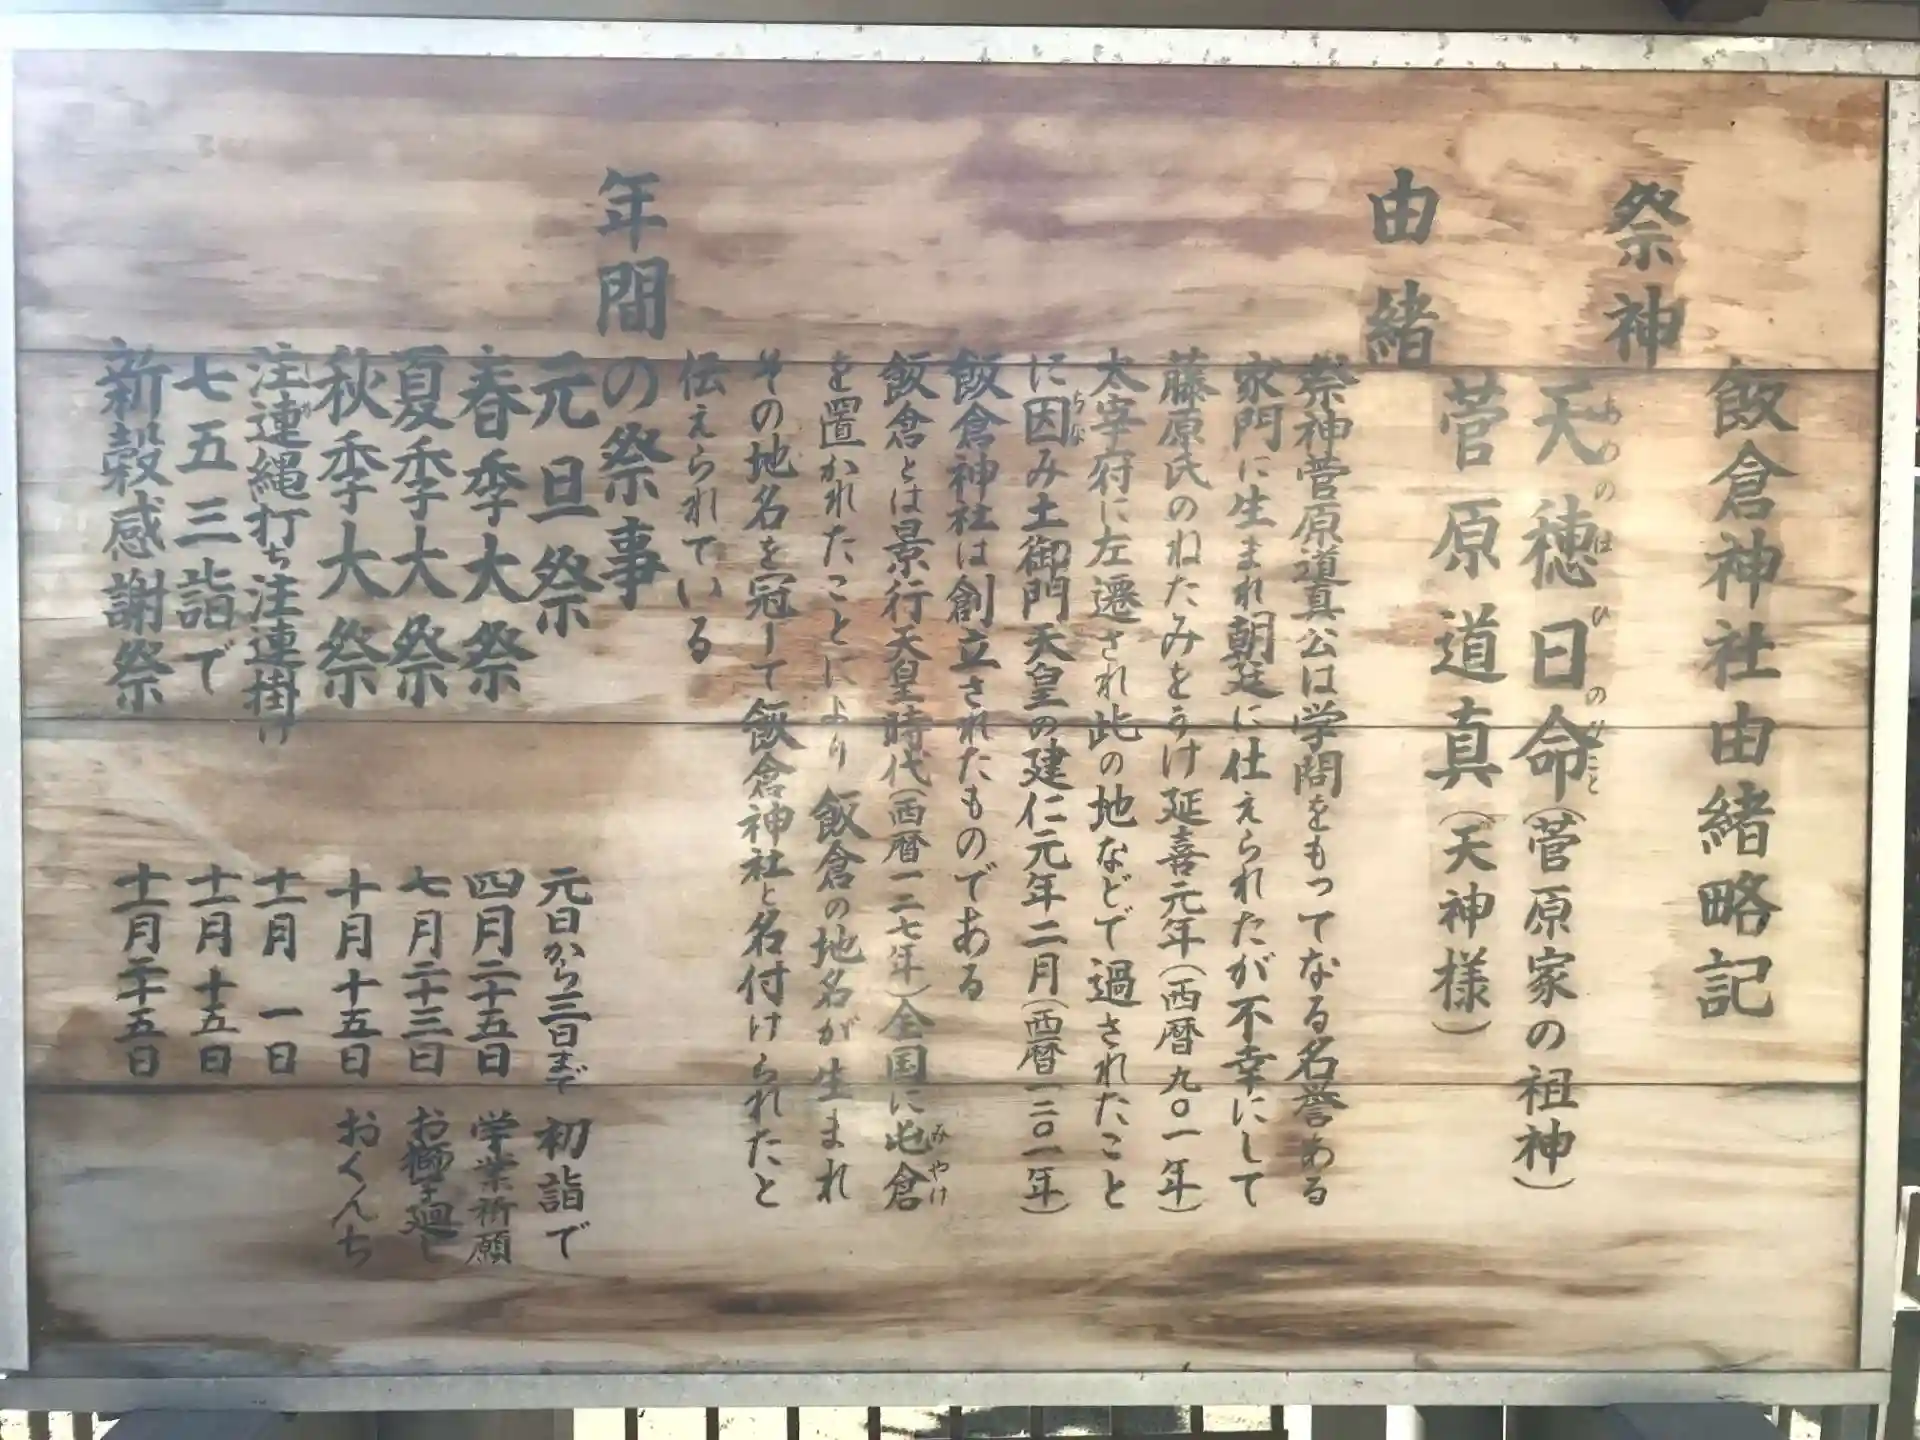 飯倉神社由緒略記
祭神
天穂日命（菅原家の祖神）
あめのほひのみこと
菅原道真（天神様）
由緒
祭神菅原道真公は学問をもってなる名誉ある
家門に生まれ朝廷に仕えられたが不幸にして
藤原氏のねたみをうけ延喜元年（西暦九〇一年）
太宰府に左遷され此の地などで過されたこと
に因み土御門天皇の建仁元年二月（西暦一二〇一年）
ちな
飯倉神社は創立されたものである
飯倉とは景行天皇時代（西暦一二七年）全国に屯倉
みやけ
を置かれたことにより飯倉の地名が生まれ
その地名を冠して飯倉神社と名付けられたと
伝えられている
年間の祭事
元旦祭 元日から三日まで 初詣で
春季大祭 四月二十五日 学業祈願
夏季大祭 七月二十三日 お獅子廻し
秋季大祭 十月十五日 おくんち
注連縄打ち注連掛け 十二月一日
七五三詣で 十一月十五日
新穀感謝祭 十二月二十五日